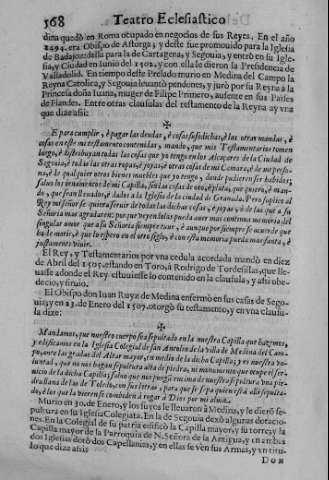 568 Teatro Eclesiastico
dina quedò en Roma ocupado en negocios de sus Reyes. En el año
1494. era Obispo de Astorga, y deste fue promovido para la Iglesia
de Badajoz: desta para la de Cartagena, y Segouia, y entrò en su Igle-
sia, y Ciudad en Iunio del 1502. y con ella le dieron la Presidencia de
Valladolid. En tiempo deste Prelado murio en Medina del Campo la
Reyna Catolica, y Segouia leuantò pendones, y jurò por su Reyna à la
Princesa doña Iuana, muger de Filipe Primero, ausente en sus Paises
de Flandes. Entre otras clausulas del testamento de la Reyna ay vna
que dize assi:
E para cumplir, è pagar las deudas, è cosas susodichas, è las otras mandas, è
cosas en este mi testamento contenidas, mando, que mis Testamentarios tomen
luego, è distribuyan todas las cosas que yo tengo en los Alcaçares de la Ciudad de
Segouia, è todas las otras ropas, è joyas, è otras cosas de mi Camara, è de mi perso-
na, è qual quier otros bienes muebles que yo tengo, donde pudieren ser habidos;
saluo los ornamentos de mi Capilla, sin las cosas de oro, è plata, que quiero, è man-
do, que sean lleuados, è dados a la Iglesia de la ciudad de Granada. Pero suplico al
Rey mi señor se quiera seruir de todas las dichas cosas, è joyas, ò de las que à su
Señoria mas agradaren: por que veyendolas pueda auer mas continua memoria del
singular amor que a su Señoria siempre tuue, è aunque por siempre se acuerde que
ha de morir, è que le espero en el otro siglo, è con esta memoria pueda mas santa, è
justamente viuir.
El Rey, y Testamentarios por vna cedula acordada mandò en diez
de Abril del 1505. estando en Toro, à Rodrigo de Tordesillas, que lle-
uasse adonde el Rey estuuiesse lo contenido en la clausula, y assi obe-
decio, y siruio.
El Obispo don Iuan Ruyz de Medina enfermò en sus casas de Sego-
uia, y en 13. de Enero del 1507. otorgò su testamento, y en vna clausu-
la dize:
Mandamos, que nuestro cuerpo sea sepultado en la nuestra Capilla que hazemos,
y edificamos en la Iglesia Colegial de san Antolin de la villa de Medina del Cam-
po, ante las gradas del Altar mayor, en medio de la dicha Capilla; y es nuestra vo-
luntad, que no nos hagan sepultura alta de piedra, ni monumento que ocupe el ser-
uicio de la dicha Capilla; saluo que nos pongã encima de nuestra sepultura vna pie-
dra llana de las de Toledo, con sus letras, para que se sepa quien està alli sepulta-
do, è los que la vieren se combiden à rogar à Dios por mi alma.
Murio en 30. de Enero, y los suyos le lleuaron à Medina, y le dierõ se-
pultura en su Iglesia Colegiata. En la de Segouia dexò algunas dotacio-
nes. En la Colegial de su patria edificò la Capilla mayor, y su torre; y la
Capilla mayor de la Parroquia de N. Señora de la Antigua, y en ambas
dos Iglesias dotò dos Capellanias, y en ellas se ven sus Armas, y vn titu-
lo que dize assi:
DON